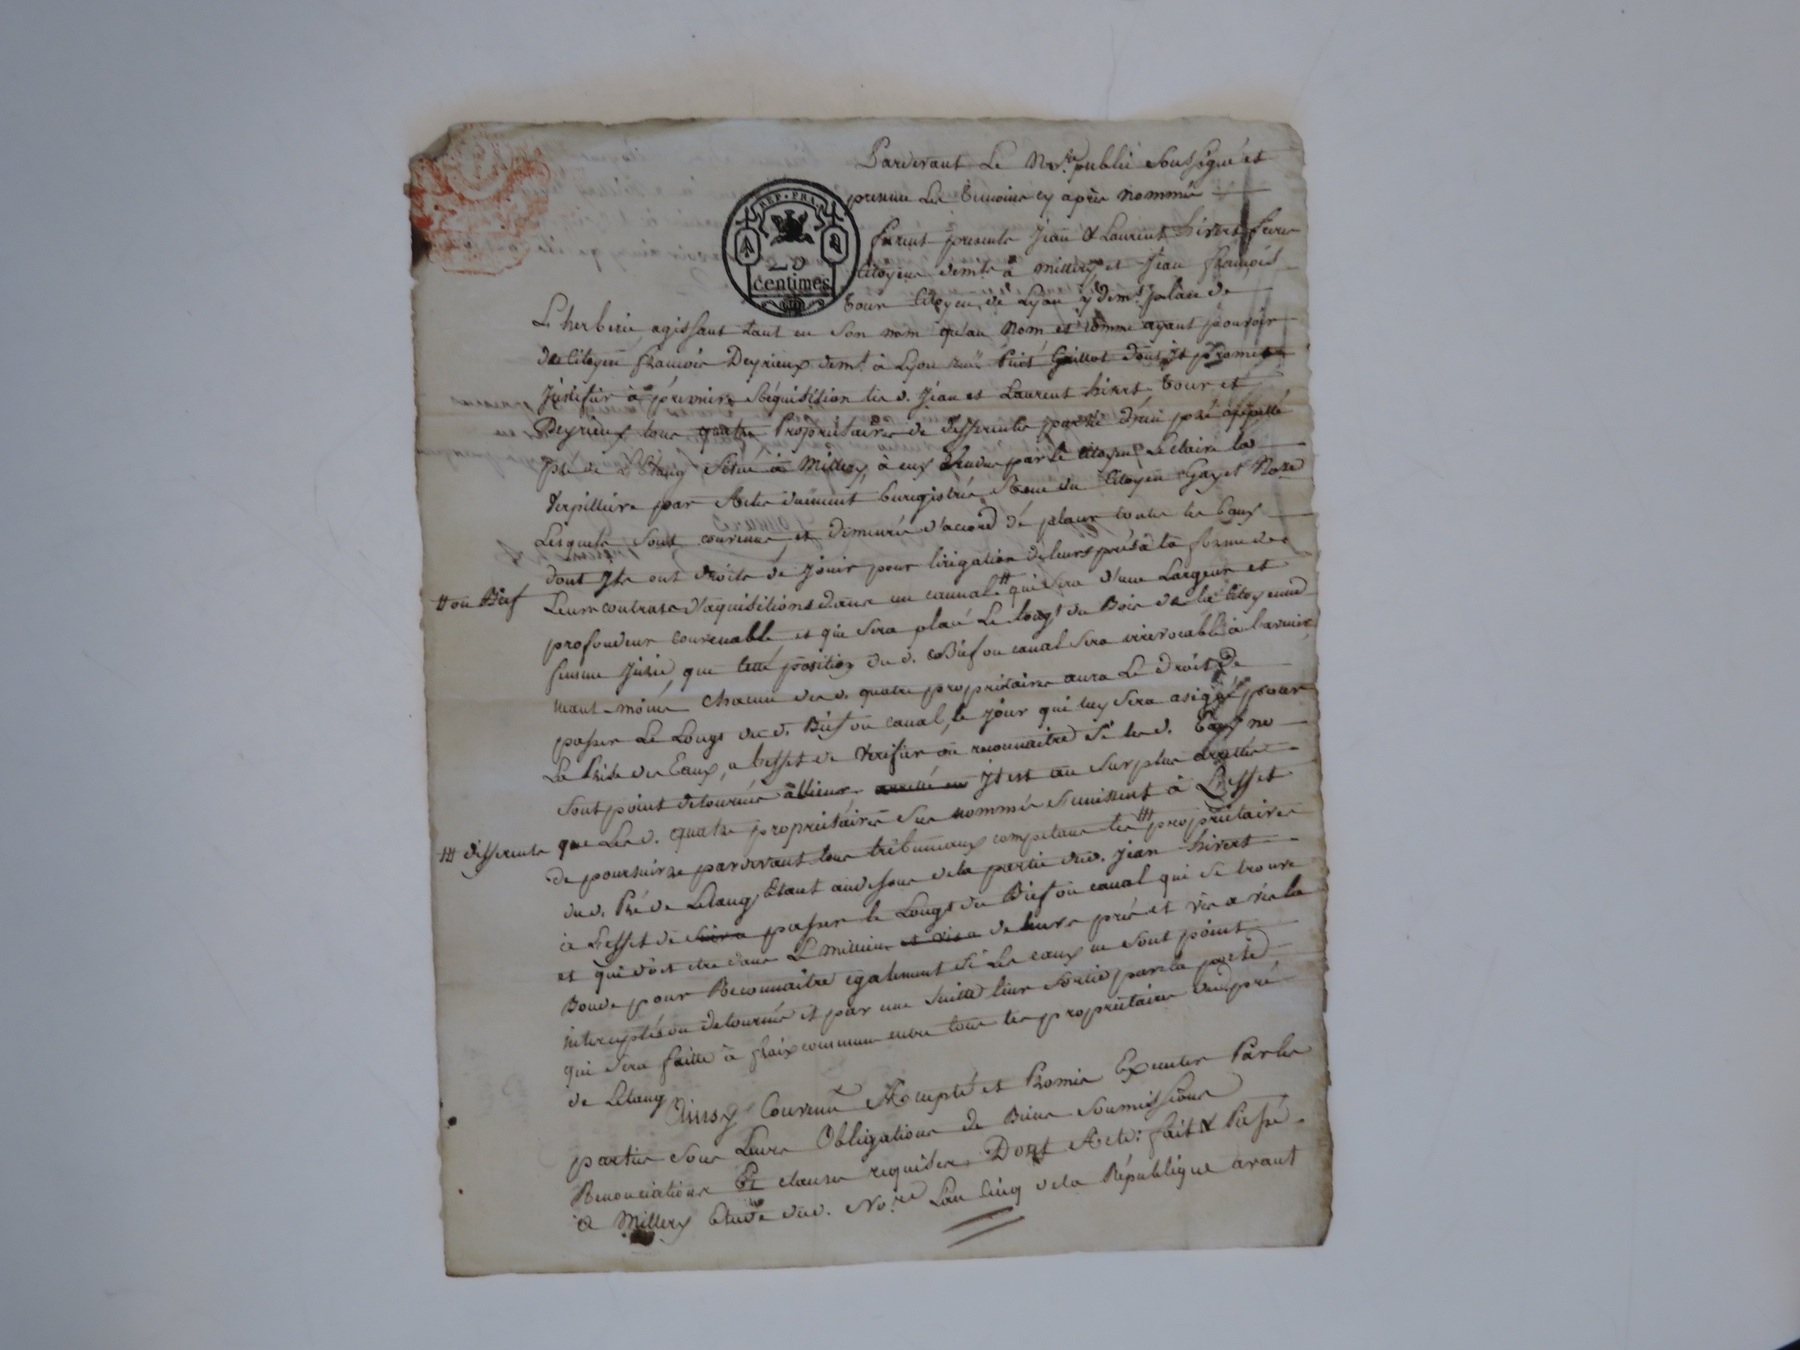 REP. FRA.
centimes
Pardevant Le No.re public Soussigné et
presence Les temoins cy aprés nommés
furent presents Jean & Laurent hivert freres
Citoyens demts à Millery et Jean françois
tour Citoyen de Lyon y demt place de
L'herberie agissant tant en son nom qu'au nom et comme ayant pouvoir
du Citoyen françois Deyrieux demt à Lyon ruë Puit Gaillot dont Jl promet
Justifier à premiere Réquisition les d. Jean et Laurent hivert tour et
Deyrieux tous quatre Propriétaires de differentes parties d'un pré appellé
pré de L'Etang Situé à Millery, à eux vendus par le Citoyen Leclair la
Verpilliere par Actes duëment Enregistrés Reçus du Citoyen Gayet Nore
Lesquels Sont convenus et demeurés d'accord de placer toutes les Eaux
dont Jls ont droits de Jouir pour l'irigation de leurs prés à la forme des
# ou Bief
Leurs contrats d'aquisitions dans un cannal # qui sera d'une Largeur et
profondeur convenable et qui Sera placé Le Long du Bois de la Citoyenne
que cette position du d. Bief ou canal Sera irrevocable à l'avenir
chacun des d. quatre propriétaires aura Le droit de
passer Le Longs du d. Bief ou canal, le Jour qui luy Sera asigné pour
La Prise des Eaux, a L'effet de Verifier ou reconnaitre Si les d. Eaux ne
Sont point detournés allieurs arretté en Jl est au Surplus arretté
## differents
que Les d. quatre propriétaires Sus nommés Se unissent à L'effet
de poursuivre pardevant tous tribunaux competans les ## propriétaires
du d. Pré de Letang Etant audessous de la partie du d. Jean hivert
à L'effet de passer le Longs du Bief ou canal qui Se trouve
et qui doit etre dans Le millieux et vis a de leurs prés et vis a vis la
Bonde pour Reconnaitre egalement Si Les eaux ne Sont point
interceptés ou detournés et par une Suitte leur Sortie par la porte
qui Sera faitte à fraix communs entre tous les propriétaires dud pré
de Letang
Ainsy Convenu Accepté et Promis Executer Par les
parties Sous Leurs Obligations de Biens Soumissions
Renonciations Et clauses requises, Dont Acte: fait & Passé
à Millery Etude du d. No.re Lan Cinq de la République avant